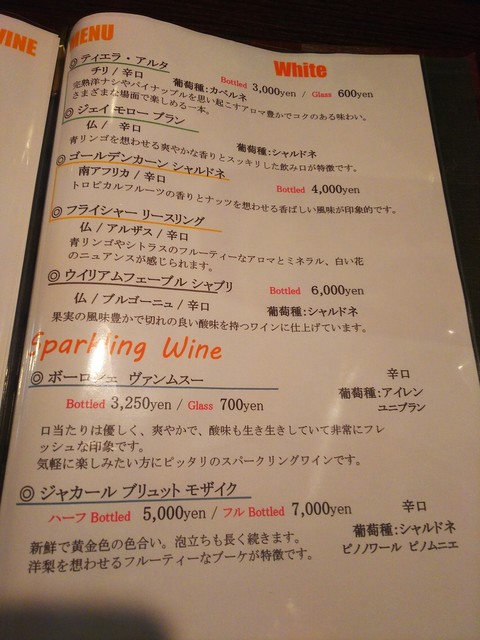 WINE
MENU
White
◎ ティエラ・アルタ
チリ / 辛口 葡萄種:カベルネ Bottled 3,000yen / Glass 600yen
完熟洋ナシやパイナップルを思い起こすアロマ豊かでコクのある味わい。
さまざまな場面で楽しめる一本。
◎ ジェイ モロー ブラン
仏 / 辛口 葡萄種:シャルドネ
青リンゴを想わせる爽やかな香りとスッキリした飲み口が特徴です。
◎ ゴールデンカーン シャルドネ
南アフリカ / 辛口 Bottled 4,000yen
トロピカルフルーツの香りとナッツを想わせる香ばしい風味が印象的です。
◎ フライシャー リースリング
仏 / アルザス / 辛口
青リンゴやシトラスのフルーティーなアロマとミネラル、白い花
のニュアンスが感じられます。
◎ ウイリアムフェーブル シャブリ Bottled 6,000yen
仏 / ブルゴーニュ / 辛口 葡萄種:シャルドネ
果実の風味豊かで切れの良い酸味を持つワインに仕上げています。
Sparkling Wine
◎ ボーロジェ ヴァンムスー 辛口
Bottled 3,250yen / Glass 700yen 葡萄種:アイレン
ユニブラン
口当たりは優しく、爽やかで、酸味も生き生きしていて非常にフレ
ッシュな印象です。
気軽に楽しみたい方にピッタリのスパークリングワインです。
◎ ジャカール ブリュット モザイク
ハーフ Bottled 5,000yen / フル Bottled 7,000yen 辛口
葡萄種:シャルドネ
ピノノワール ピノムニエ
新鮮で黄金色の色合い。泡立ちも長く続きます。
洋梨を想わせるフルーティーなブーケが特徴です。